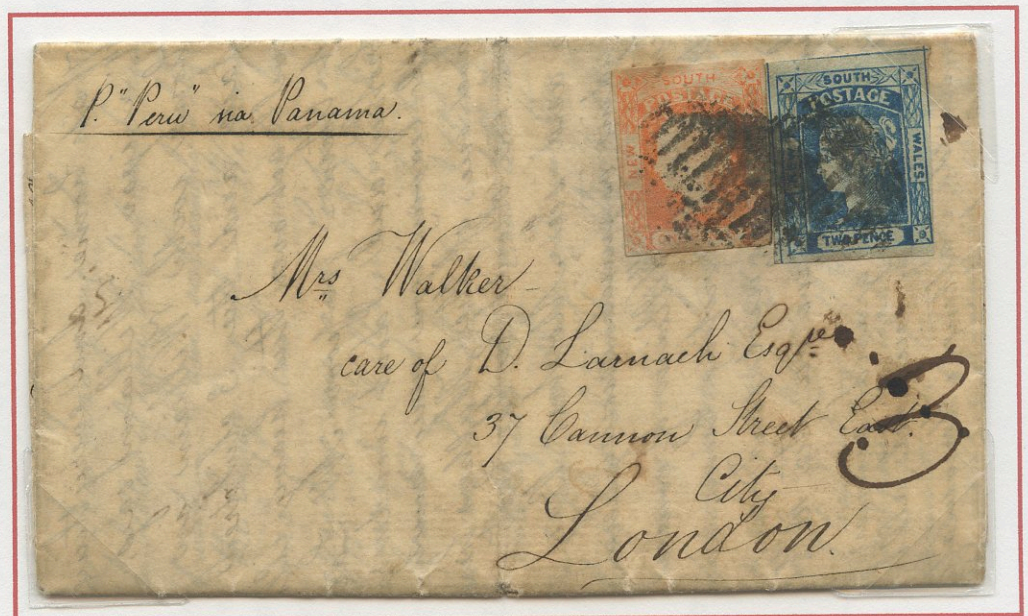 P. "Peru" via Panama.
SOUTH
POSTAGE
NEW
SOUTH
POSTAGE
WALES
TWO PENCE
Mrs Walker
care of D. Larnach Esqre
37 Cannon Street East.
City
London.
3